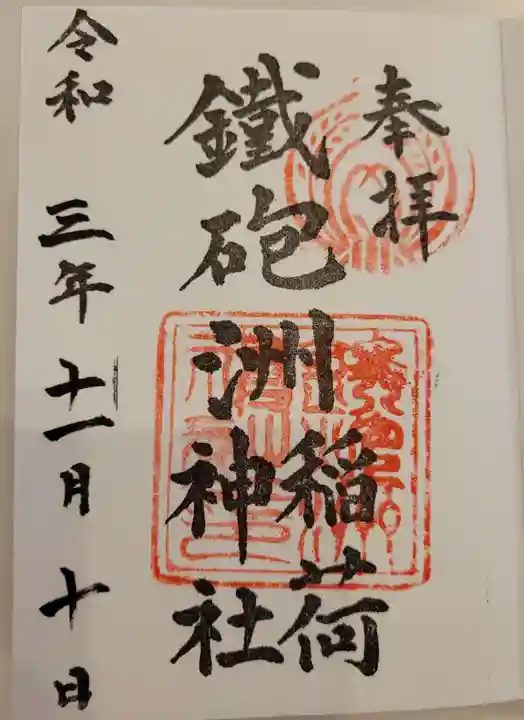 奉拝
鐵砲洲稲荷
神社
令和三年十一月十日